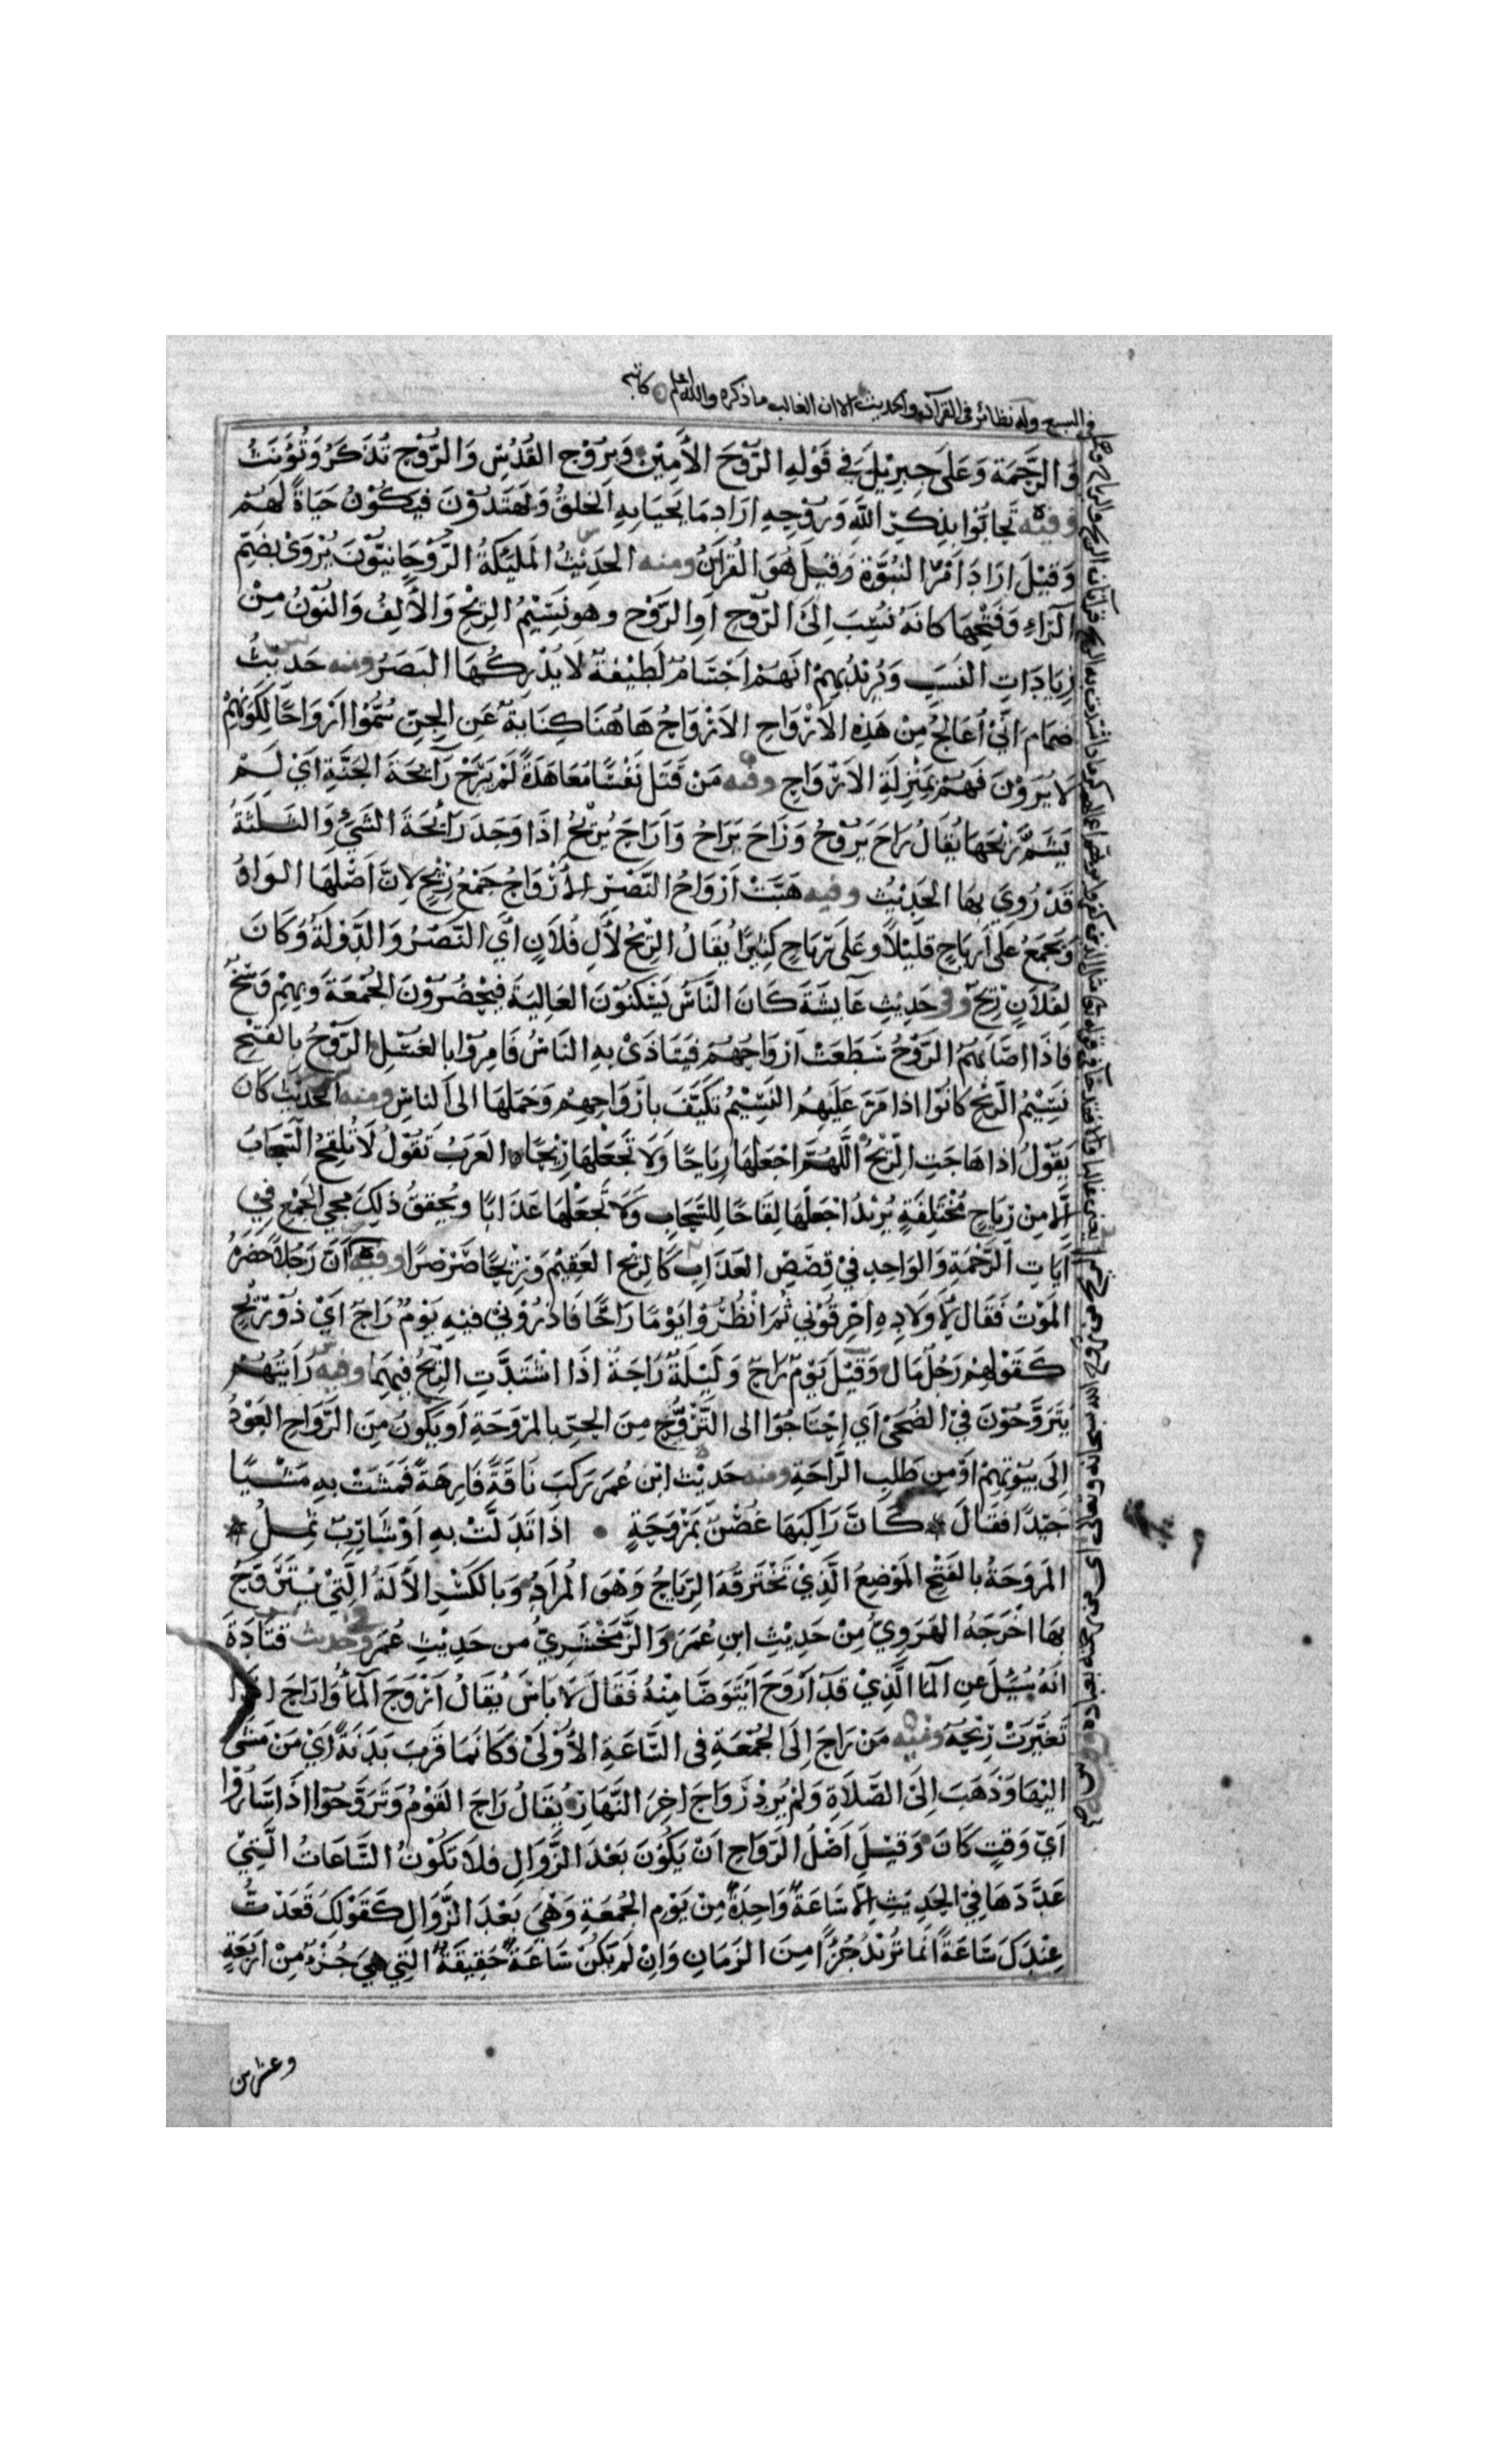 في السبع وله نظائر في القرآن والحديث الا ان الغالب ما ذكره والله اعلم كاتبه
وَالرَّحْمَةِ وَعَلَى جِبرِيْلَ فِي قَوْلِهِ الرُّوْحَ الأَمِيْن وَبِرُوْحِ القُدُسِ وَالرُّوْح تُذَكَّرُ وَتُؤَنَّثُ
وَفيْه تَحَابُّوا بِذِكِرِ اللهِ وَرُوْحِهِ اَرَادَ مَا يَحيَا بِهِ الخَلقُ وَيَهتَدُوْنَ فَيَكُوْنُ حَيَاةً لَهُمْ
وَقِيْلَ ارَادَ اَمْرَ النُّبُوَّةِ وَقِيلَ هُوَ القُرآنُ ومنه الحَدِيْثُ المَلَئكَةُ الرُّوْحَانِيُّوْنَ يُرْوَىْ بِضَمِّ
الرَّاءِ وَفَتْحِهَا كَانَهُ نُسِبَ اِلَى الرُّوحِ اَوِ الرَّوْحِ وهو نَسِيْمُ الرِيْحِ وَالأَلِفُ وَالنُوْنُ مِنْ
زِيَادَاتِ النَسَبِ وَيُرِيْدُ بِهِمْ اَنَهُمْ اَجْسَامٌ لَطِيْفَةٌ لَا يُدْرِكُهَا البَصَرُ ومنه حَدِيْثُ
ضِمَامٍ اِنِّيْ اُعَالِجُ مِنْ هَذِهِ الأَرْوَاحِ الاَرْوَاحُ هَاهُنَا كِنَايَةٌ عَنِ الجِنِّ سُمُّوْا اَرْوَاحًا لِكَوْنِهِمْ
لَا يُرَوْنَ فَهُمْ بِمَنْزِلَةِ الاَرْوَاحِ وفيه مَنْ قَتَلَ نَفْسًا مُعَاهَدَةً لَمْ يَرَحْ رَآئِحَةَ الجَنَّةِ اَيْ لَمْ
يَشَمَّ رِيْحَهَا يُقَالُ رَاحَ يَرِيْحُ وَرَاحَ يَرَاحُ وَاَرَاحَ يُرِيْحُ اذَا وَجَدَ رَائِحَةَ الشَيْءِ وَالثَّلثَةُ
قَدْ رُوِيَ بِهَا الحَدِيْثُ وفيه هَبَّتْ اَرْوَاحُ النَّصْرِ الأَرْوَاحُ جَمْعُ رِيْحٍ لِاَنَّ اَصْلَهَا الوَاوُ
وَيُجْمَعُ عَلَى اَرْيَاحٍ قَلِيْلًا وعَلَى رِيَاحٍ كَثِيْرًا يُقَالُ الرِّيْحُ لآلِ فُلَانٍ اَيِ النَّصْرُ وَالدَّوْلَةُ وَكَانَ
لِفُلَانٍ رِيْحٌ وفي حَدِيْثِ عَآيِشَةَ كَانَ النَّاسُ يَسْكُنُوْنَ العَالِيَةَ فَيَحْضُرُوْنَ الجُمْعَةَ وَبِهِمْ وَسَخٌ
فَاذَا اَصَابَهُمُ الرَّوْحُ سَطَعَتْ اَرْوَاحُهُمْ فَيَتَاَذَىْ بِهِ النَاسُ فَاُمِرُوْا بِالغُسْلِ الرَّوْحُ بِالفَتْحِ
نَسِيْمُ الرِّيْحِ كَانُوْا اذا مَرَّ عَلَيهِمُ النَّسِيْمُ تَكَيَّفَ بِاَرْوَاحِهِمْ وَحَمَلَهَا الى النَاسِ ومنه الحَدِيث كَانَ
يَقُوْلُ اذا هَاجَتِ الرِّيْحُ اَللَّهُمَّ اجْعَلْهَا رِيَاحًا وَلَا تَجْعَلْهَا رِيْحًا العَرَبُ تَقُوْلُ لَا تُلقِحُ السَّحَابُ
اِلَّا مِن رِيَاحٍ مُخْتَلِفَةٍ يُرِيْدُ اجْعَلْهَا لِقَاحًا لِلسَّحَابِ وَلَا تَجْعَلْهَا عَذَابًا ويُحَقِقُ ذَلِكَ مجيءُ الجَمْعِ فِي
آيَاتِ الرَّحْمَةِ وَالوَاحِدِ فِيْ قِصَصِ العَذَابِ كَالرِيْحِ العَقِيْمِ وَرِيْحًا صَرْصَرًا وفيه اَنَّ رَجُلًا حَضَرَهُ
المَوْتُ فَقَالَ لِاَوْلَادِهِ اَحْرِقُوْنِي ثُمَّ انْظُرُوْا يَوْمًا رَاحًا فَاذْرُوْنِيْ فِيْهِ يَوْمٌ رَاحٌ اَيْ ذُوْ رِيْحٍ
كَقَوْلِهِمْ رَجُلٌ مَالٌ وَقِيْلَ يَوْمٌ رَاحٌ وَلَيْلَةٌ رَاحَةٌ اذَا اشْتَدَّتِ الرِّيْحُ فِيهِمَا وفيه رَاَيْتُهُمْ
يَتَرَوَّحُوْنَ فِيْ الضُّحَى اَي اِحْتَاجُوْا الى التَّرَوُّحِ مِنَ الحَرِّ بِالمِرْوَحَةِ اَو يَكُونُ مِنَ الرَّوَاحِ العَوْدُ
اِلَى بُيُوْتِهِمْ اَوْ مِنْ طَلَبِ الرَّاحَةِ ومنه حَدِيْث ابْنِ عُمَرَ رَكِبَ نَاقَةً فَارِهَةً فَمَشَتْ بِهِ مَشْيًا
جَيِّدًا فَقَالَ كَاَنَّ رَاكِبَهَا غُصْنٌ بِمَرْوَحَةٍ اذَا تَدَلَّتْ بِهِ اَوْ شَارِبٌ ثَمِلُ
المَرْوَحَةُ بِالفَتْحِ المَوْضِعُ الَّذِيْ تَخْتَرِقُهُ الرِّيَاحُ وَهْوَ المُرَادُ وَبِالكَسْرِ الأَلَةُ الَّتِيْ يُتَرَوَّحُ
بِهَا اَخْرَجَهُ الهَرَوِيُّ مِنْ حَدِيْثِ ابْنِ عُمَرَ وَالزَّمَخْشَرِيُّ من حَدِيْثِ عُمَرَ وفي حديث قَتَادَةَ
اَنَهُ سُئِلَ عَنِ المَآ الَّذِيْ قَدْ اَرْوَحَ اَيُتَوَضَّا مِنْهُ فَقَالَ لَا بَاسَ يُقَالُ اَرْوَحَ المَآءُ وَاَرَاحَ اذَا
تَغَيَّرَتْ رِيْحُهُ وفيه مَنْ رَاحَ اِلَى الجُمْعَةِ فى السَّاعَةِ الأُوْلَىْ فَكَاَنَمَا قَرَّبَ بَدَنَةً اَيْ مَنْ مَشَى
اليْهَا وَذَهَبَ اِلَى الصَّلَاةِ وَلَمْ يُرِدْ رَوَاحَ اخِرِ النَّهَارِ يُقَالُ رَاحَ القَوْمُ وَتَرَوَّحُوْا اذَا سَارُوْا
اَيَّ وَقتٍ كَانَ وَقِيْلَ اَصْلُ الرَّوَاحِ اَنْ يَكُوْنَ بَعْدَ الزَّوَالِ فَلَا تَكُوْنُ السَّاعَاتُ الَّتِيْ
عَدَّدَهَا فِيْ الحَدِيْثِ اِلَّا سَاعَةً وَاحِدَةً مِنْ يَوْمِ الجُمُعَةِ وَهْيَ بَعْدَ الزَّوَالِ كَقَوْلِكَ قَعَدْتُ
عِنْدَكَ سَاعَةً اِنَمَا تُرِيْدُ جُزْأً مِنَ الزَمَانِ وَاِنْ لَمْ تَكُنْ سَاعَةً حَقِيْقَةً التِي هِيَ جُزْءٌ مِنْ اَرْبَعَةٍ
وعشرين